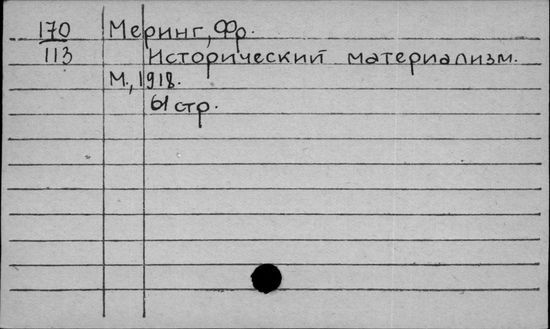 170 Меринг, Фр.
113 Исторический материализм.
М., 1918.
61 стр.